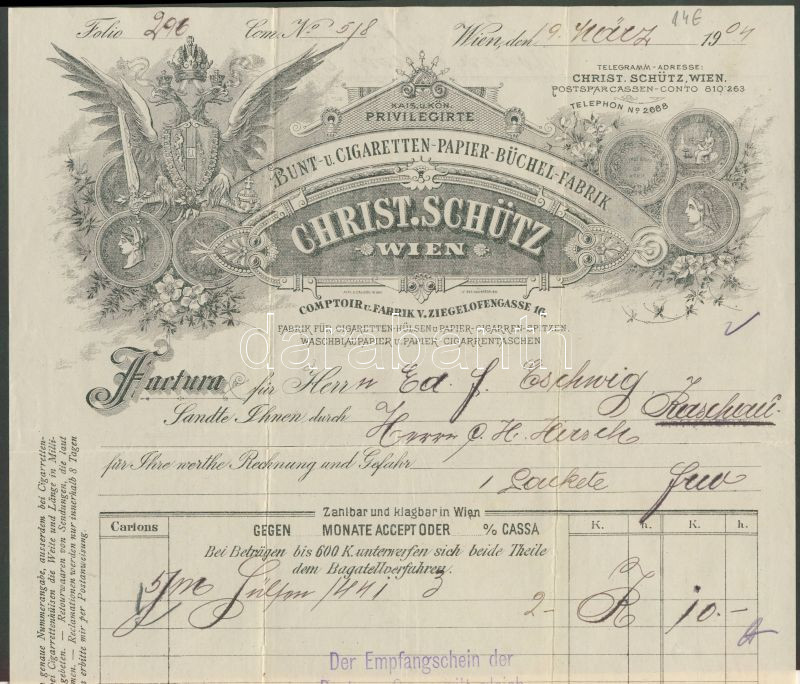 Folio 206 Com. No 518 Wien, den 9. März 1904
14€
TELEGRAMM-ADRESSE:
CHRIST. SCHÜTZ, WIEN.
POSTSPARCASSEN-CONTO 810·263
TELEPHON No 2688
KAIS. U. KÖN.
PRIVILEGIRTE
BUNT- U. CIGARETTEN-PAPIER-BÜCHEL-FABRIK
CHRIST. SCHÜTZ
WIEN
COMPTOIR u. FABRIK V. ZIEGELOFENGASSE 16.
FABRIK FÜR CIGARETTEN-HÜLSEN U. PAPIER-CIGARREN-SPITZEN.
WASCHBLAUPAPIER U. PAPIER-CIGARRENTASCHEN
darabanth
Factura für Herrn Ed. J. Eschwig
Sandte Ihnen durch Kaschau
Herrn C. H. Hirsch
für Ihre werthe Rechnung und Gefahr
1 Packete
Zahlbar und klagbar in Wien
Cartons GEGEN MONATE ACCEPT ODER % CASSA K. h. K. h.
Bei Beträgen bis 600 K. unterwerfen sich beide Theile
dem Bagatellverfahren.
5/m 441 3 2- K 10.-
Der Empfangschein der
genaue Nummerangabe, ausserdem bei Cigaretten-
bei Cigarettenhülsen die Weite und Länge in Milli-
gebeten. — Retourwaaren von Sendungen, die laut
men. — Reclamationen werden nur innerhalb 8 Tagen
erbitte mir per Postanweisung.